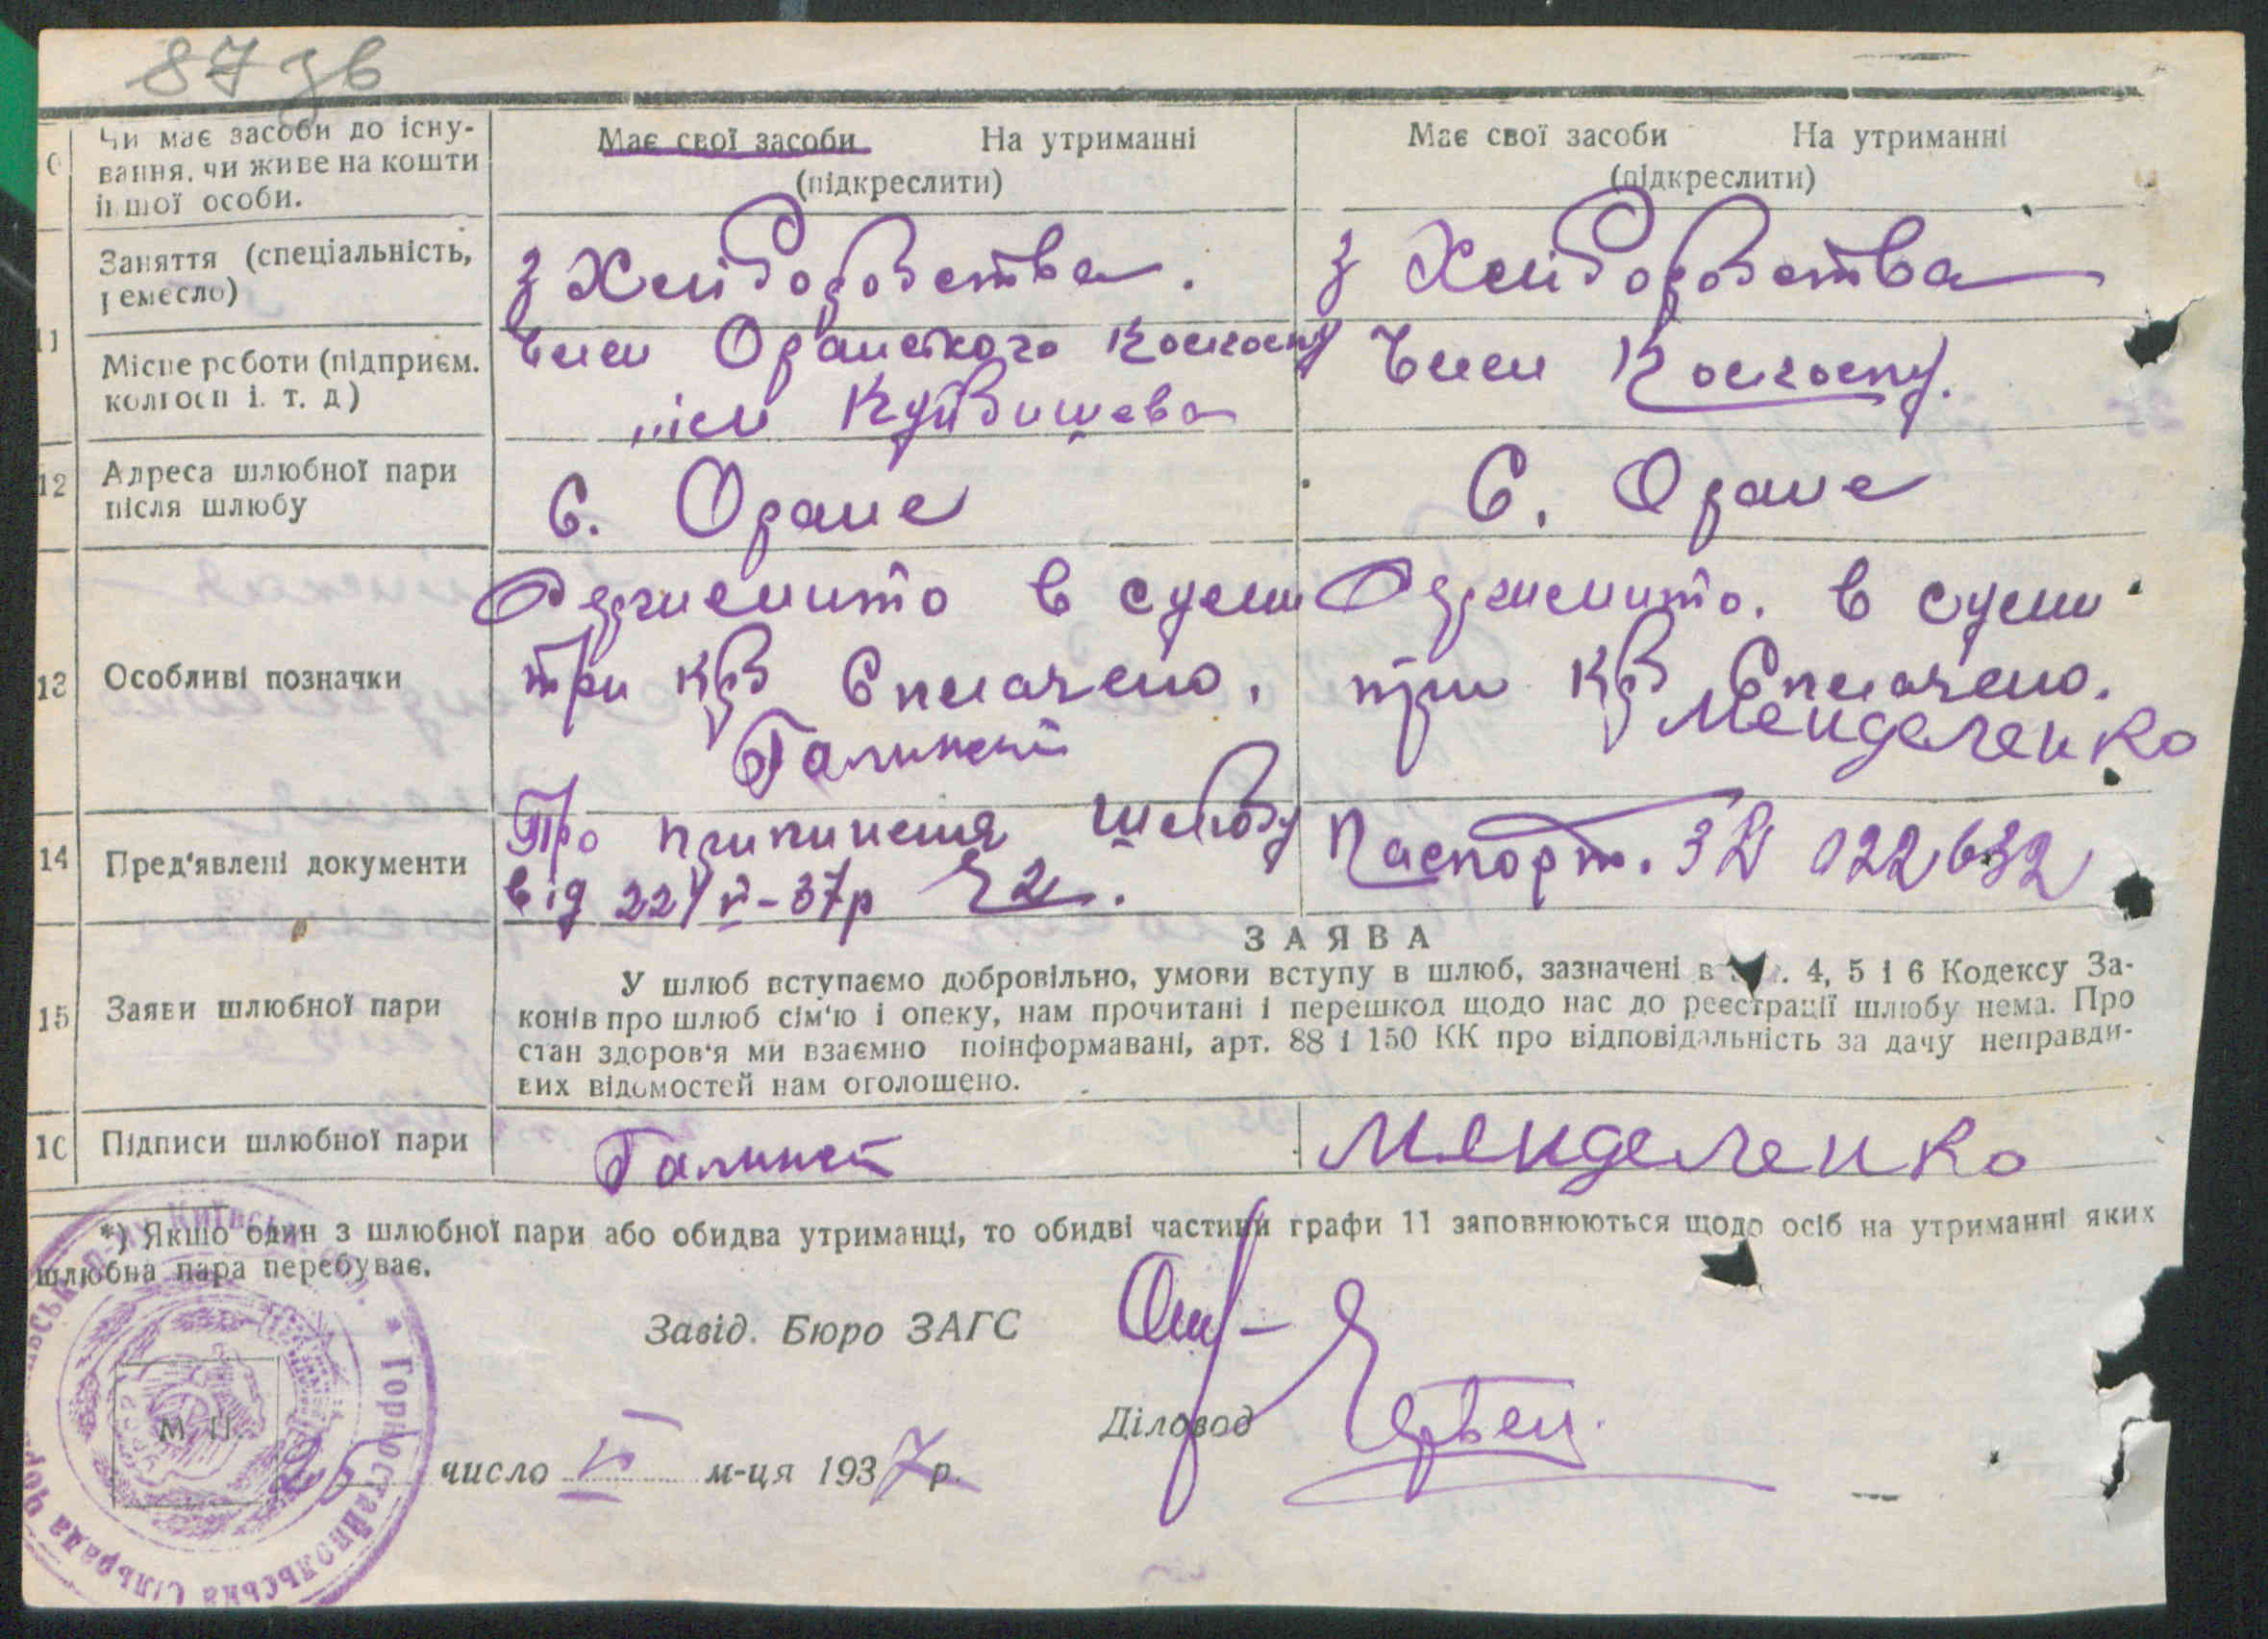 87 зв
Чи має засоби до існу-
вання, чи живе на кошти
іншої особи.
Має свої засоби На утриманні
(підкреслити)
Має свої засоби На утриманні
(підкреслити)
11
Заняття (спеціальність,
ремесло)
З Хліборобства.
З Хліборобства
Місце роботи (підприєм.
колгосп і. т. д)
Член Оранского Колгоспу
ім Куйбишева
Член Колгоспу.
12
Адреса шлюбної пари
після шлюбу
С. Оране
С. Оране
13
Особливі позначки
Держмито в сумі
три крб Сплачено.
Держмито. в сумі
три крб Сплачено.
Менделенко
14
Пред'явлені документи
Про припинення шлюбу
від 22/V-37р
Паспорт. 022632
ЗАЯВА
15
Заяви шлюбної пари
У шлюб вступаємо добровільно, умови вступу в шлюб, зазначені в 4, 5 і 6 Кодексу За-
конів про шлюб сім'ю і опеку, нам прочитані і перешкод щодо нас до реєстрації шлюбу нема. Про
стан здоров'я ми взаємно поінформавані, арт. 88 і 150 КК про відповідальність за дачу неправди-
вих відомостей нам оголошено.
16
Підписи шлюбної пари
Менделенко
*) Якщо один з шлюбної пари або обидва утриманці, то обидві частини графи 11 заповнюються щодо осіб на утриманні яких
шлюбна пара перебуває.
Завід. Бюро ЗАГС
Діловод
М. П.
25 число V м-ця 1937р.
Горностайпольська Сільрада